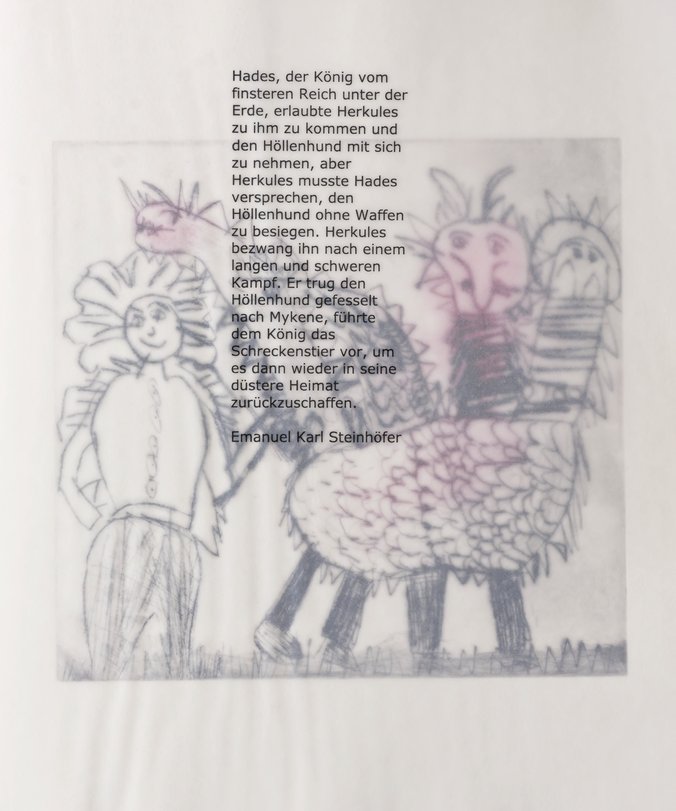 Hades, der König vom
finsteren Reich unter der
Erde, erlaubte Herkules
zu ihm zu kommen und
den Höllenhund mit sich
zu nehmen, aber
Herkules musste Hades
versprechen, den
Höllenhund ohne Waffen
zu besiegen. Herkules
bezwang ihn nach einem
langen und schweren
Kampf. Er trug den
Höllenhund gefesselt
nach Mykene, führte
dem König das
Schreckenstier vor, um
es dann wieder in seine
düstere Heimat
zurückzuschaffen.
Emanuel Karl Steinhöfer